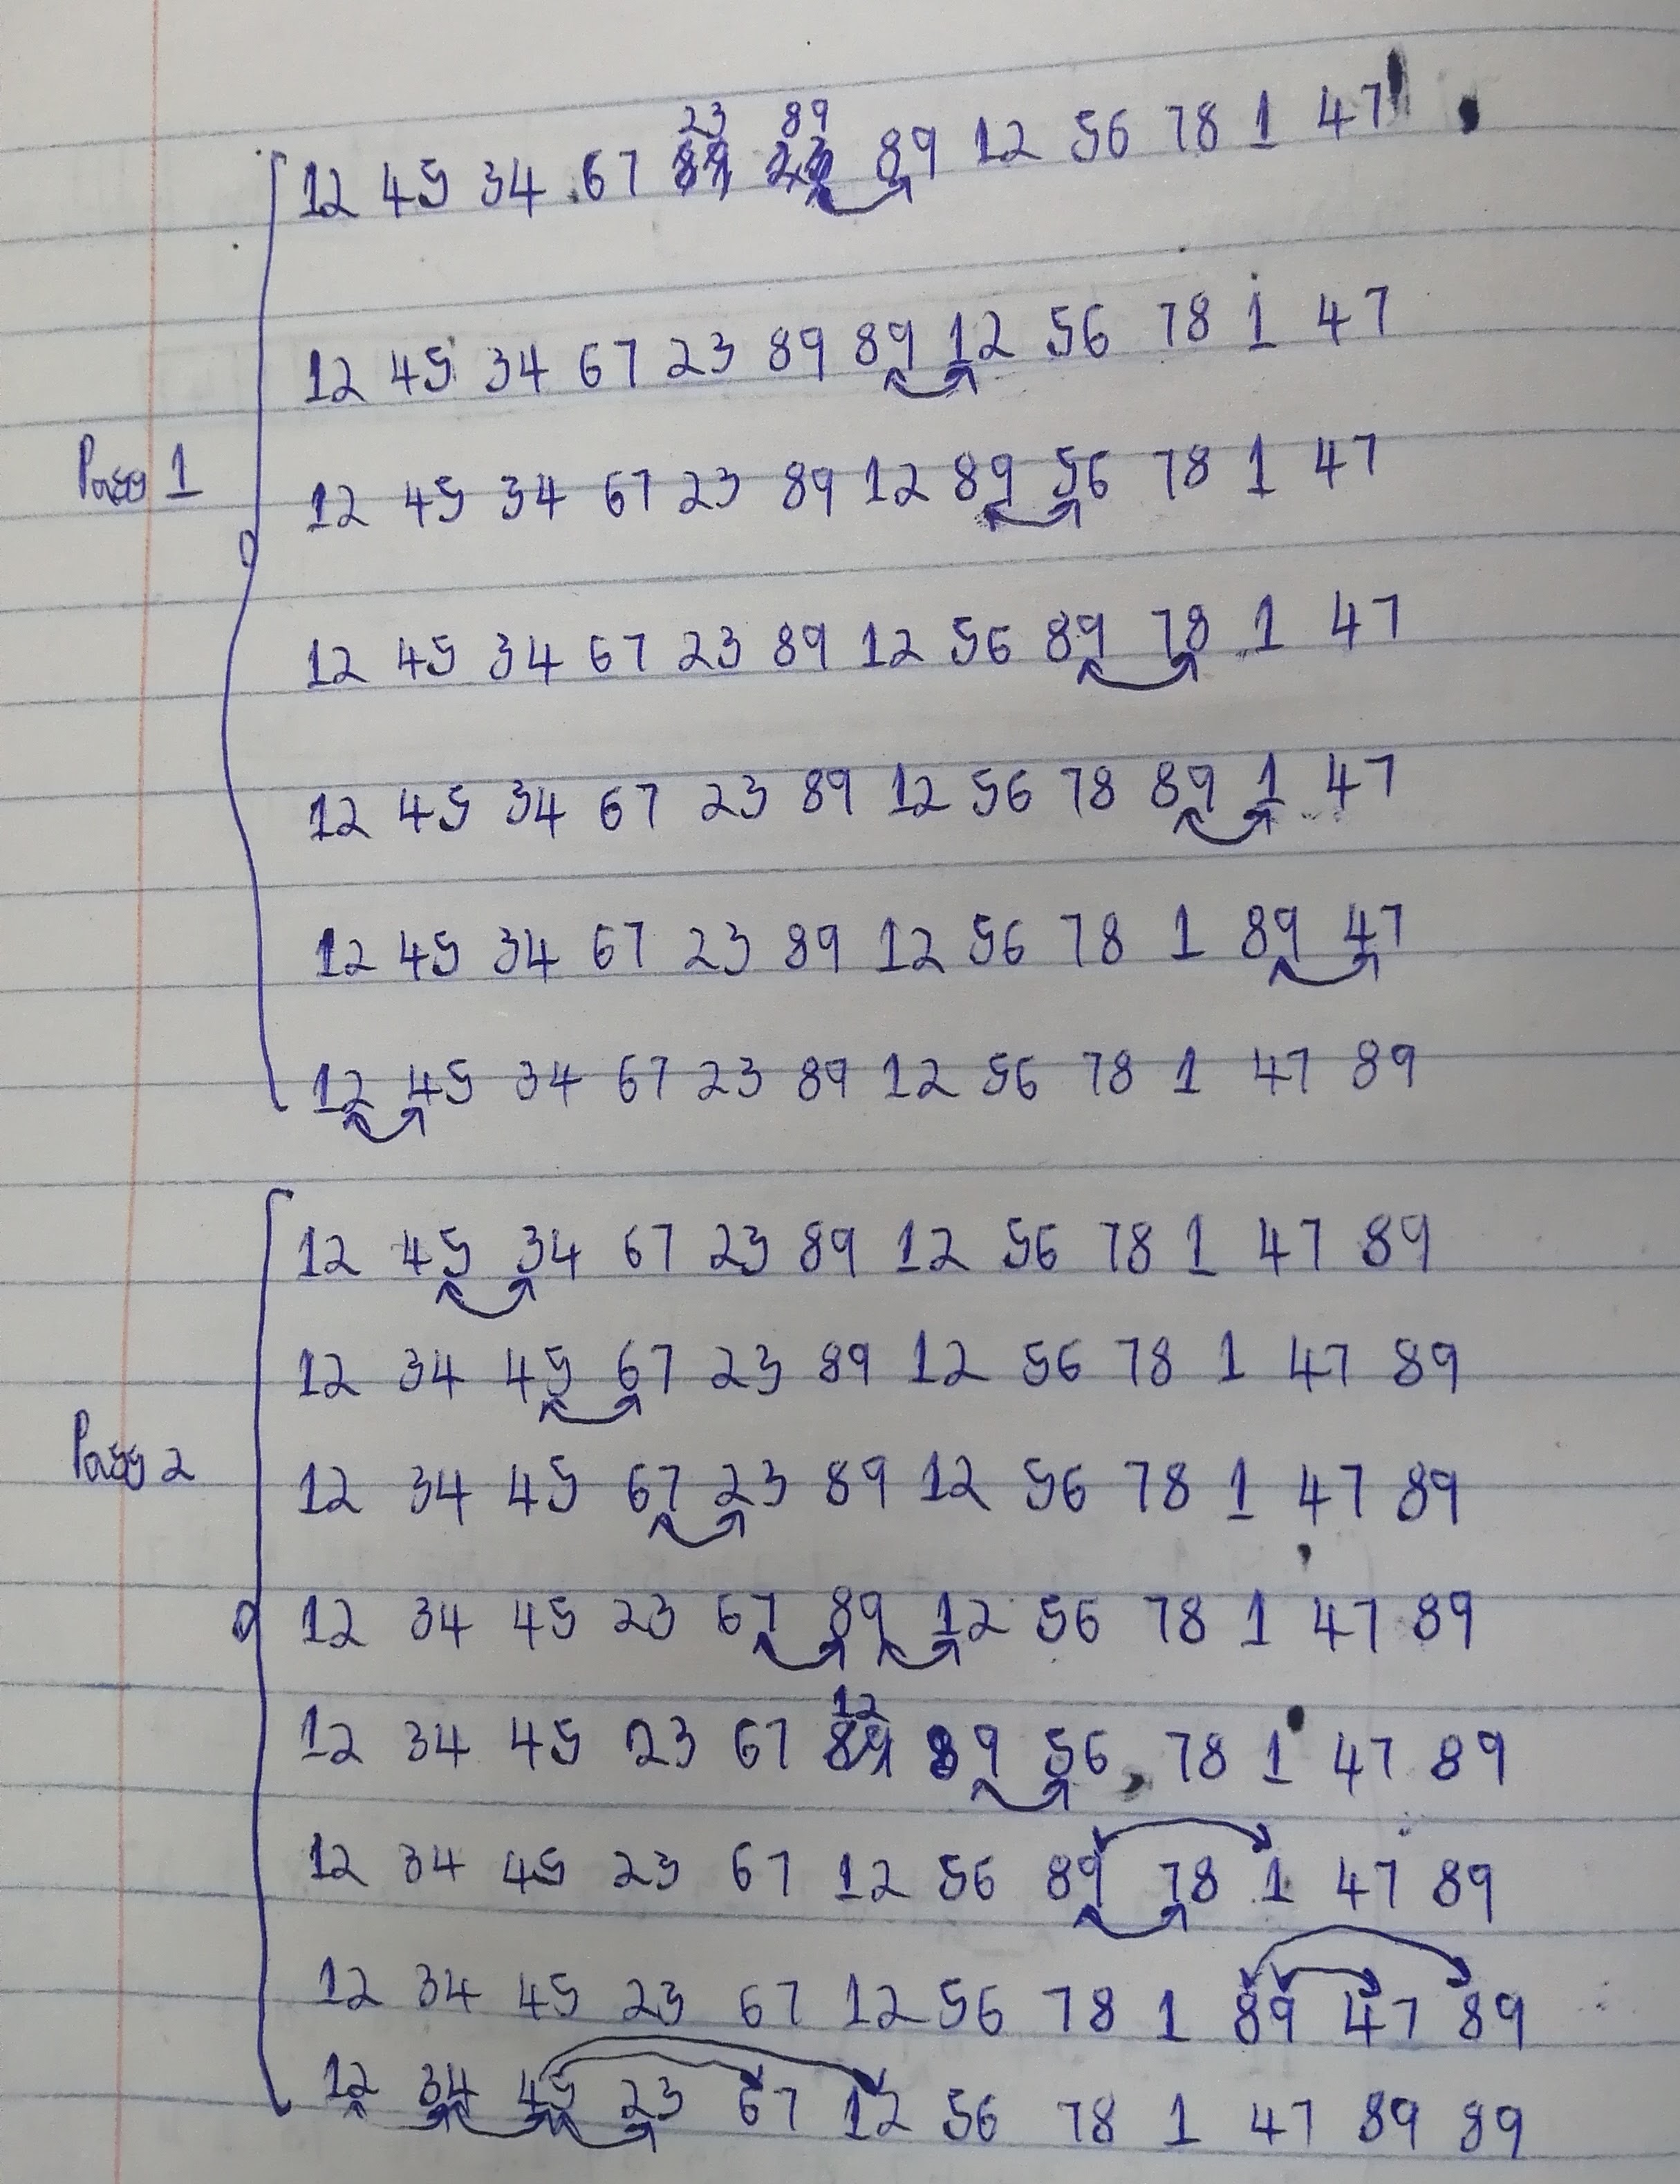 23 89
12 45 34 67 89 23 89 12 56 78 1 47
12 45 34 67 23 89 89 12 56 78 1 47
Pass 1
12 45 34 67 23 89 12 89 56 78 1 47
12 45 34 67 23 89 12 56 89 78 1 47
12 45 34 67 23 89 12 56 78 89 1 47
12 45 34 67 23 89 12 56 78 1 89 47
12 45 34 67 23 89 12 56 78 1 47 89
12 45 34 67 23 89 12 56 78 1 47 89
12 34 45 67 23 89 12 56 78 1 47 89
Pass 2
12 34 45 67 23 89 12 56 78 1 47 89
12 34 45 23 67 89 12 56 78 1 47 89
12
12 34 45 23 67 89 89 56 78 1 47 89
12 34 45 23 67 12 56 89 78 1 47 89
12 34 45 23 67 12 56 78 1 89 47 89
12 34 45 23 67 12 56 78 1 47 89 89